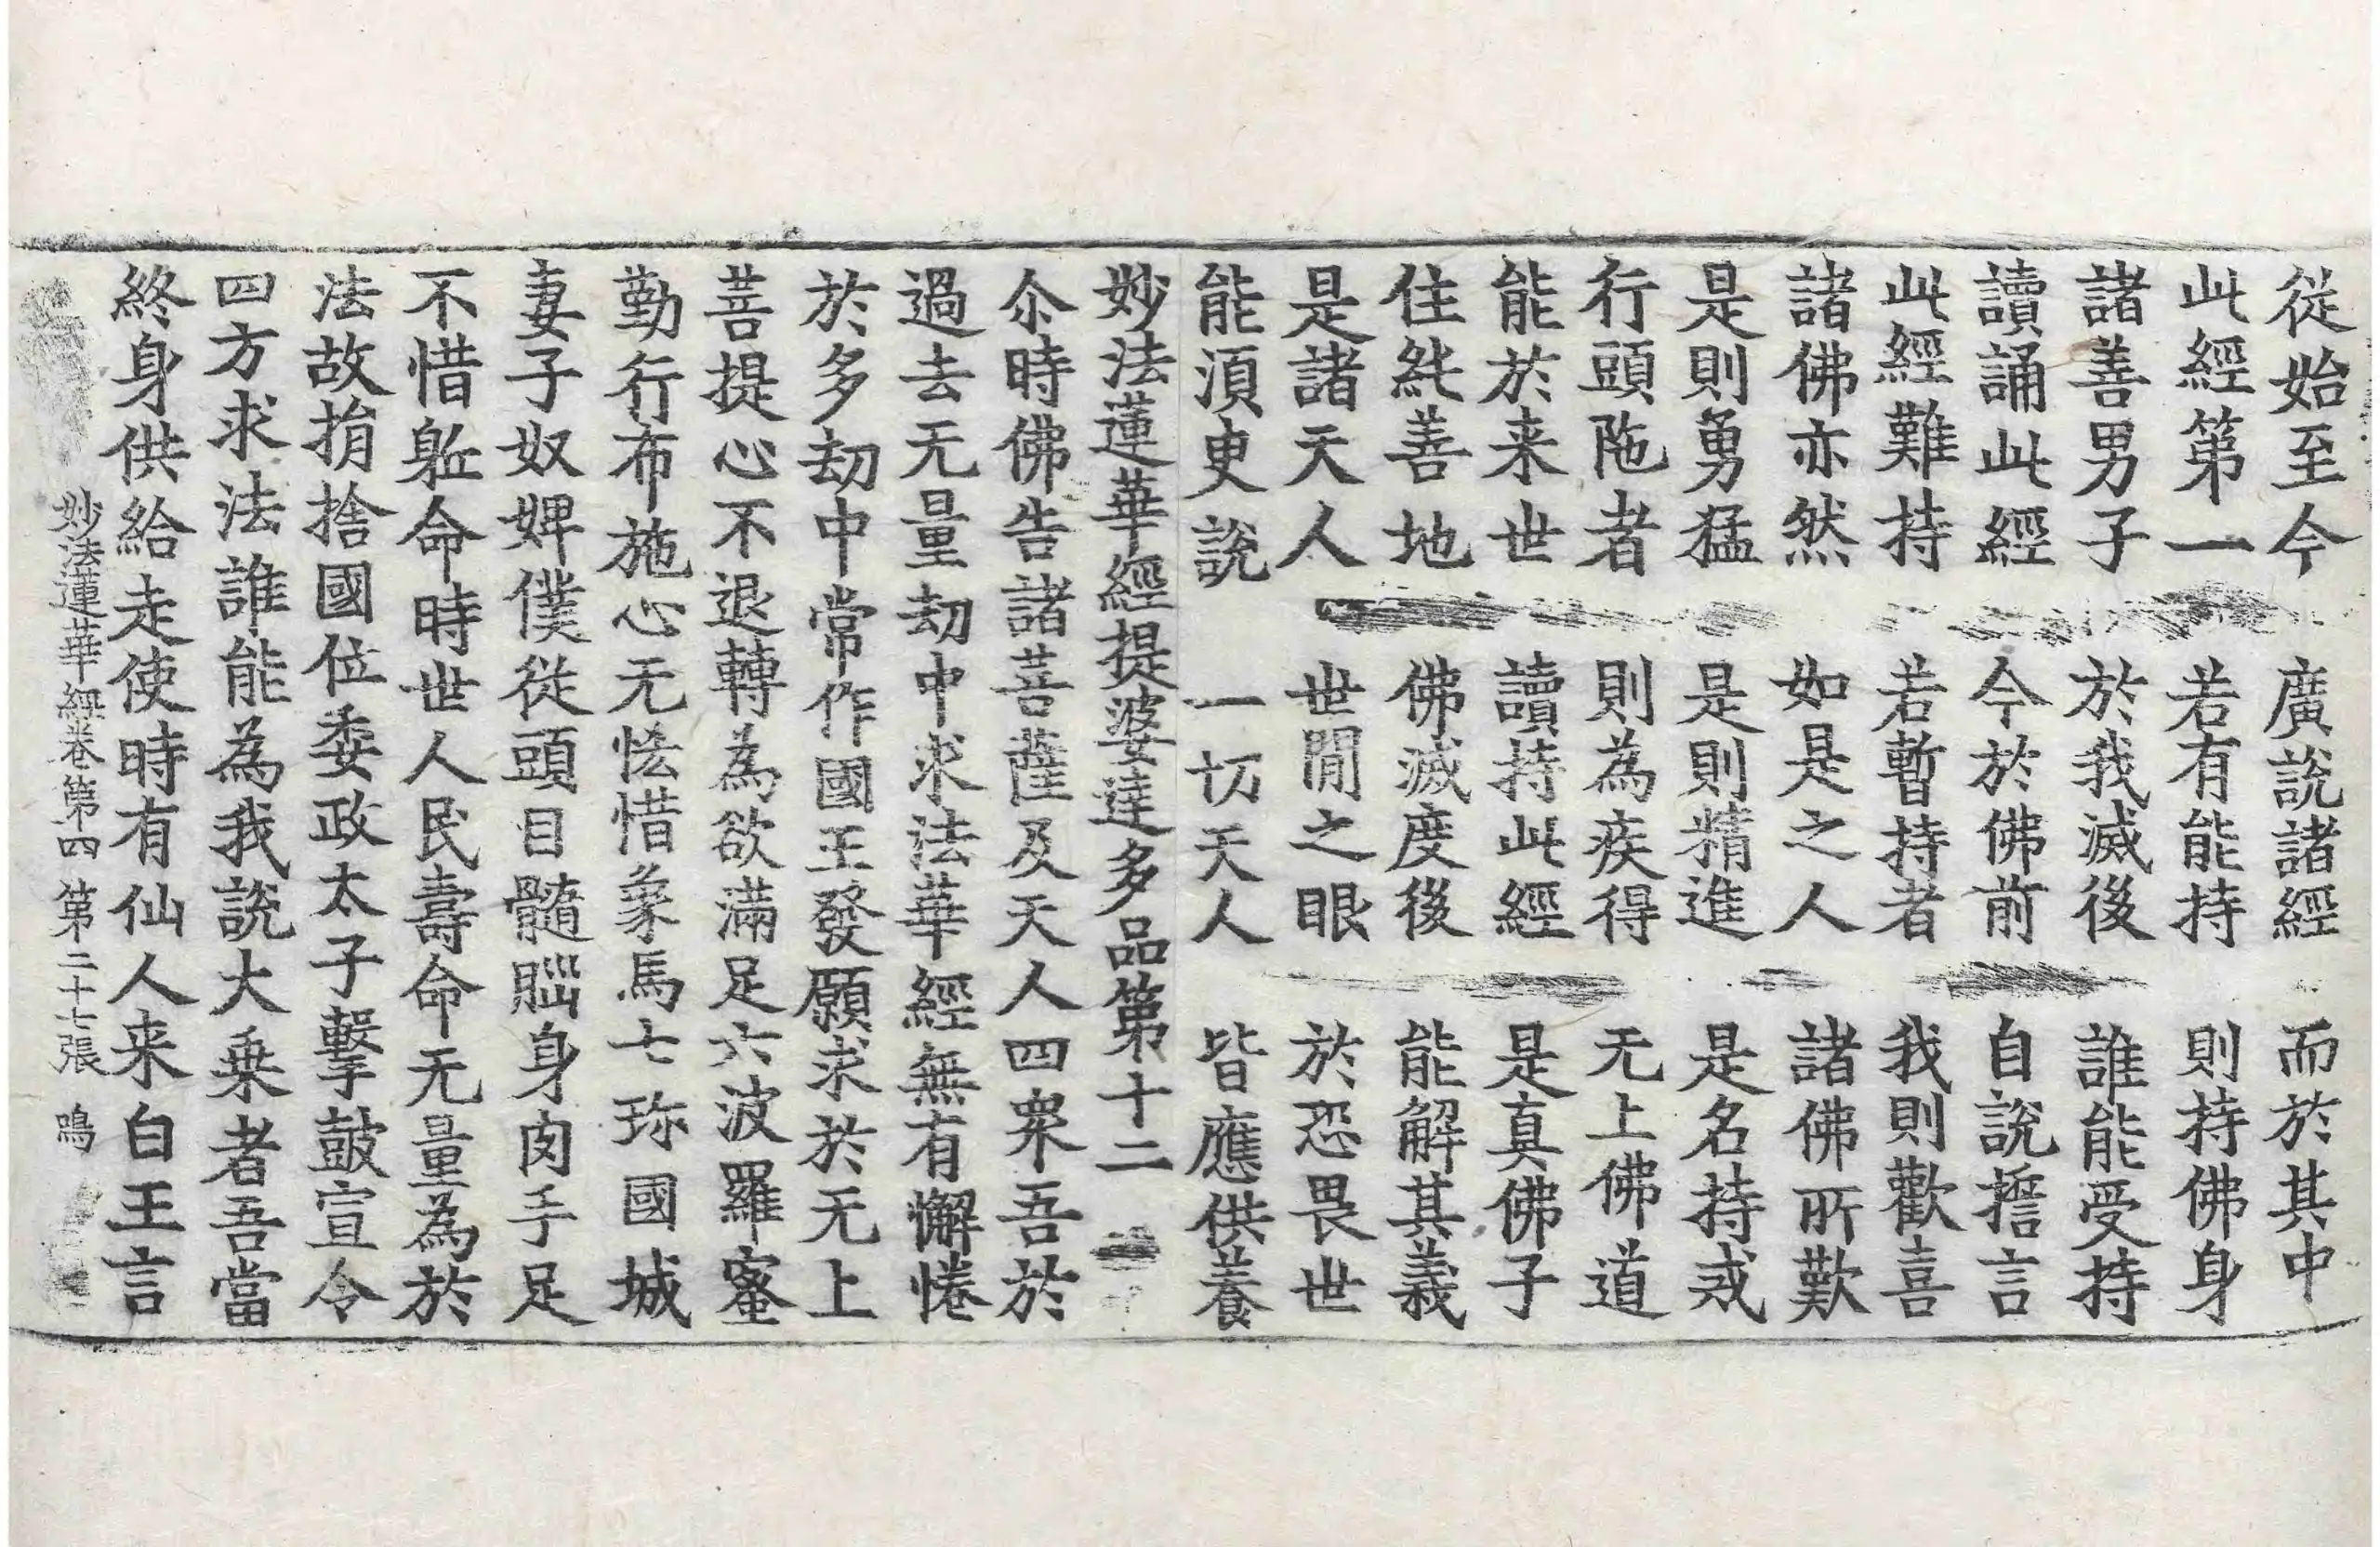 從始至今 廣說諸經 而於其中
此經第一 若有能持 則持佛身
諸善男子 於我滅後 誰能受持
讀誦此經 今於佛前 自說誓言
此經難持 若暫持者 我則歡喜
諸佛亦然 如是之人 諸佛所歎
是則勇猛 是則精進 是名持戒
行頭陁者 則為疾得 无上佛道
能於来世 讀持此經 是真佛子
住純善地 佛滅度後 能解其義
是諸天人 世閒之眼 於恐畏世
能須臾說 一切天人 皆應供養
妙法蓮華經提婆達多品第十二
尒時佛告諸菩薩及天人四衆吾於
過去无量劫中求法華經無有懈惓
於多劫中常作國王發願求於无上
菩提心不退轉為欲滿足六波羅蜜
勤行布施心无悋惜象馬七珎國城
妻子奴婢僕從頭目髓䐉身肉手足
不惜軀命時世人民壽命无量為於
法故捐捨國位委政太子擊鼓宣令
四方求法誰能為我說大乗者吾當
終身供給走使時有仙人来白王言
妙法蓮華經卷第四 第二十七張 鳴